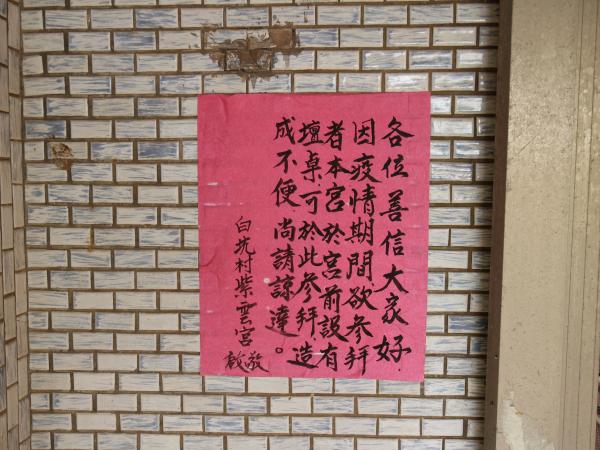 各位善信大家好
因疫情期間欲參拜
者本宮於宮前設有
壇卓可於此參拜造
成不便尚請諒達。
白坑村紫雲宮
敬啟